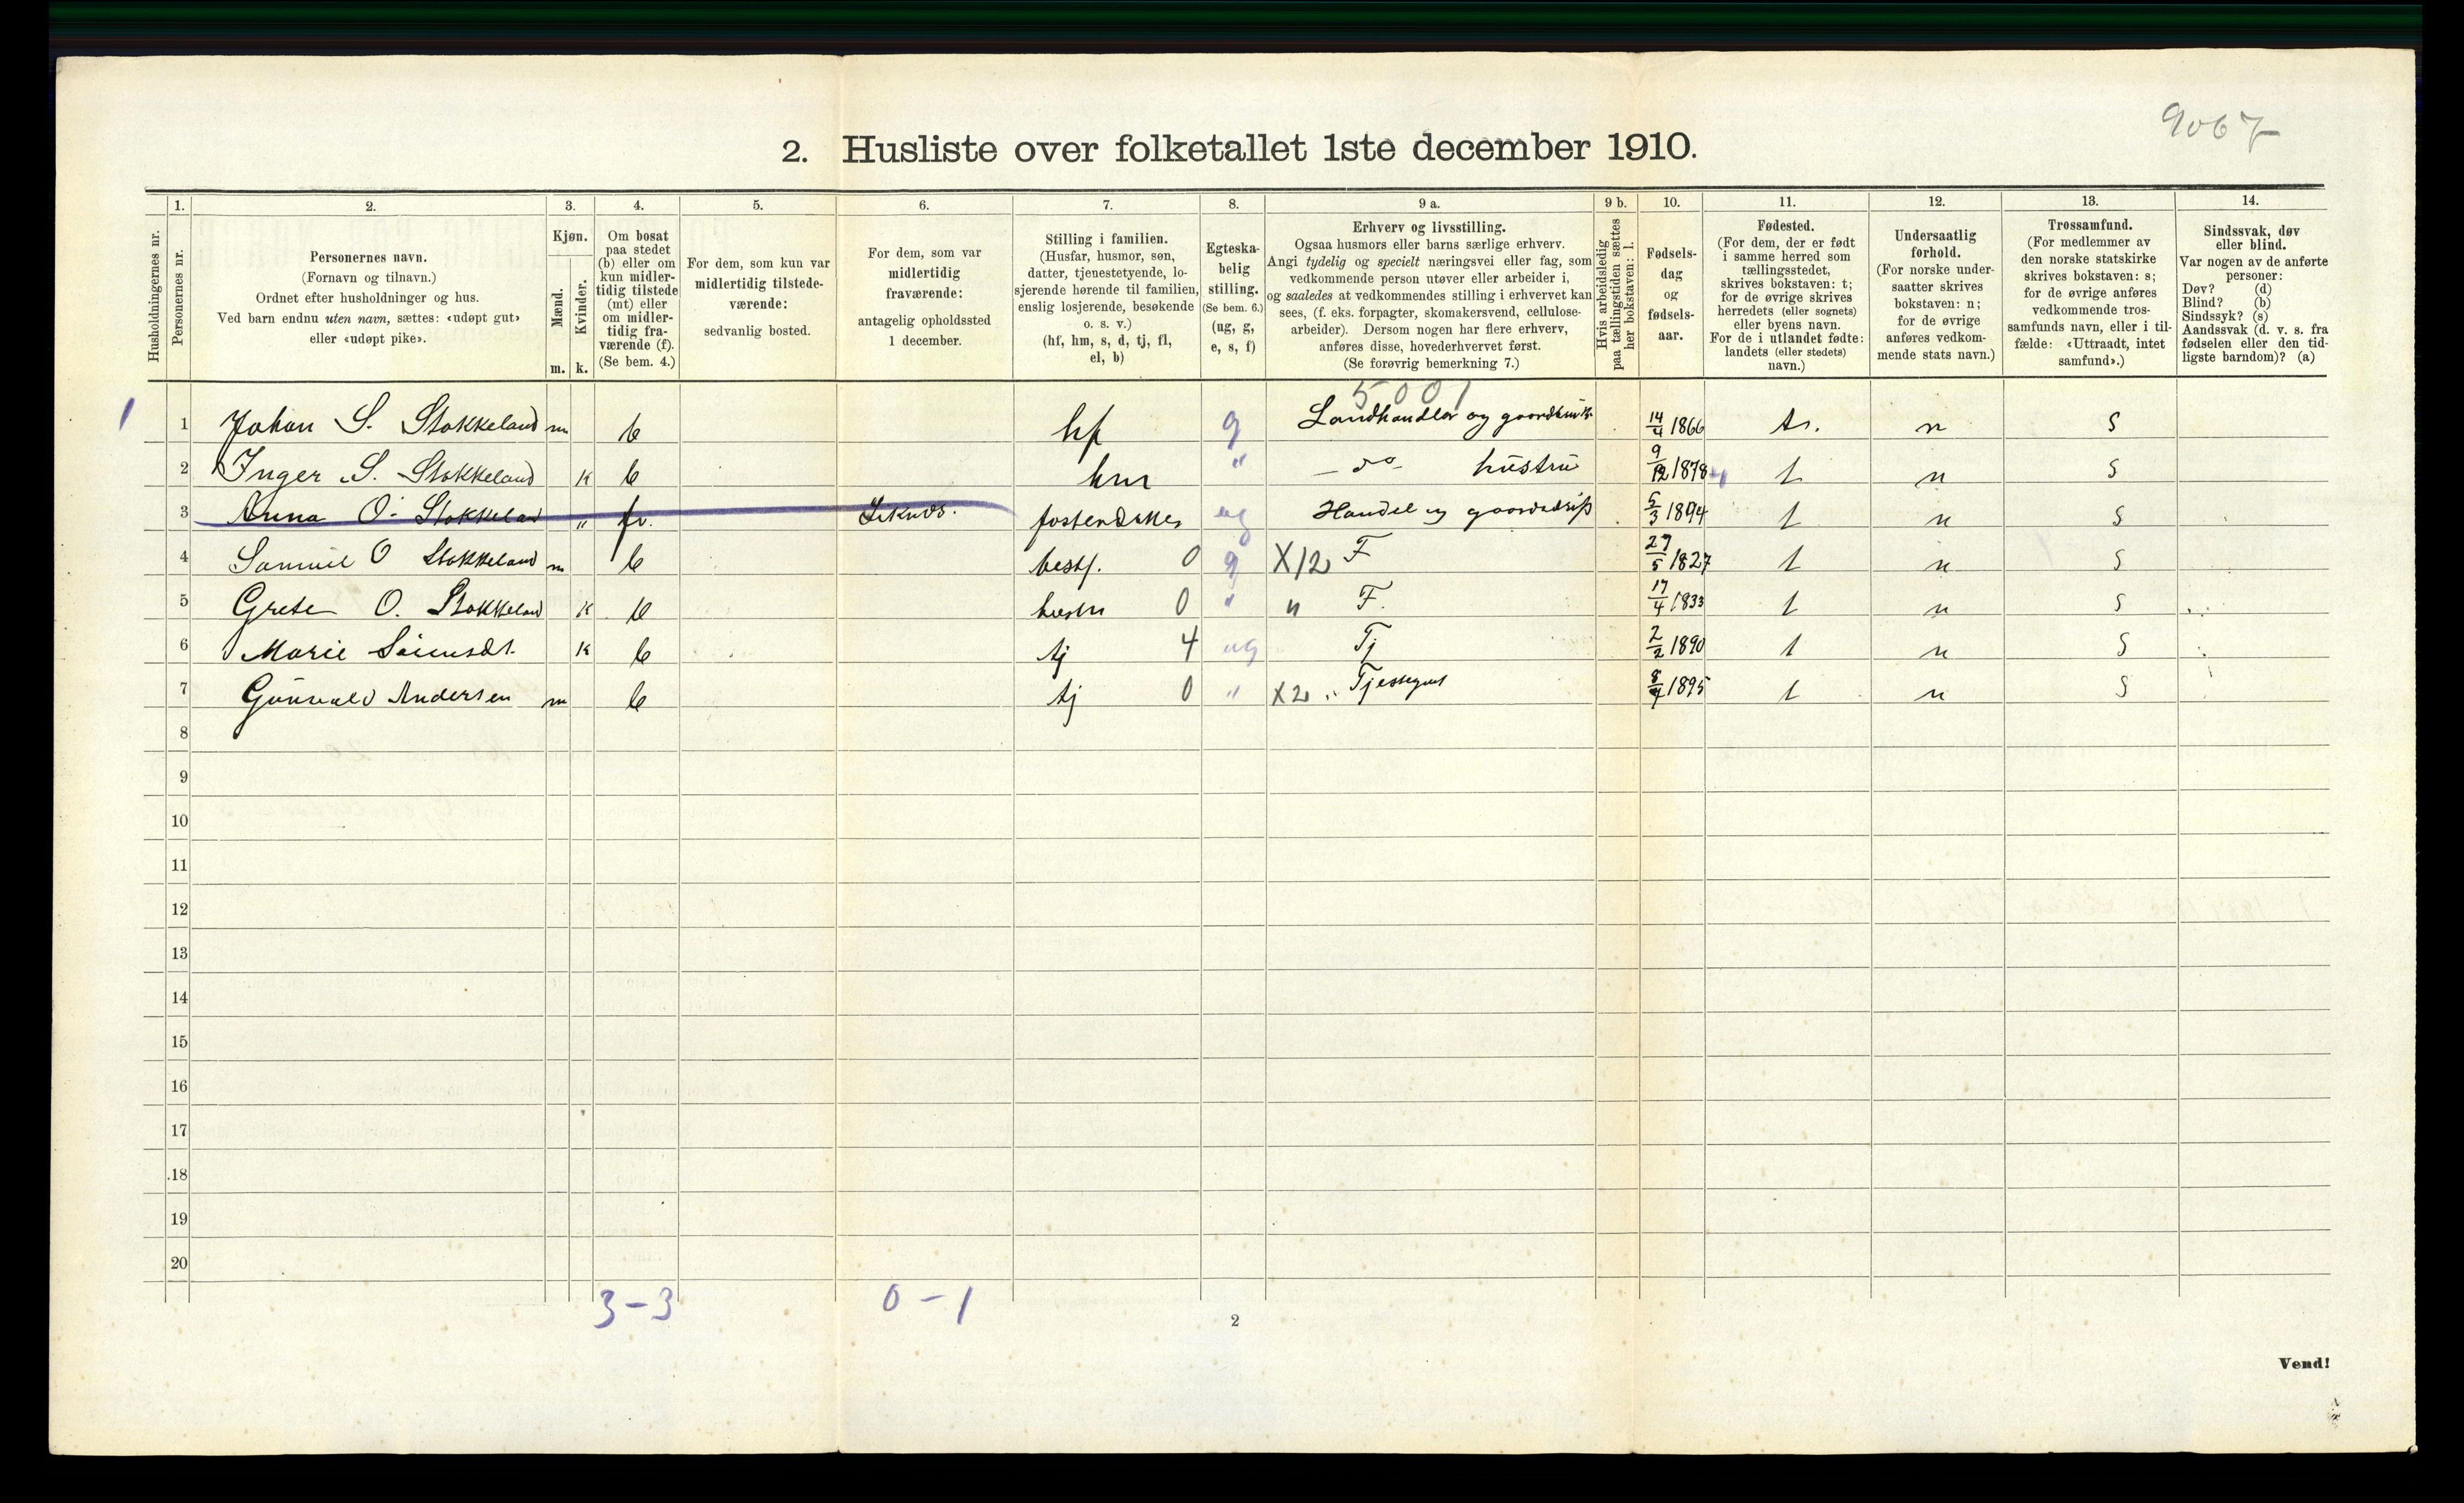 9067
2. Husliste over folketallet 1ste december 1910.
Husholdningernes nr.
1.
Personernes nr.
2.
Personernes navn.
(Fornavn og tilnavn.)
Ordnet efter husholdninger og hus.
Ved barn endnu uten navn, sættes: «udøpt gut»
eller «udøpt pike».
3.
Kjøn.
Mænd.
Kvinder.
m. k.
4.
Om bosat
paa stedet
(b) eller om
kun midler-
tidig tilstede
(mt) eller
om midler-
tidig fra-
værende (f).
(Se bem. 4.)
5.
For dem, som kun var
midlertidig tilstede-
værende:
sedvanlig bosted.
6.
For dem, som var
midlertidig
fraværende:
antagelig opholdssted
1 december.
7.
Stilling i familien.
(Husfar, husmor, søn,
datter, tjenestetyende, lo-
sjerende hørende til familien,
enslig losjerende, besøkende
o. s. v.)
(hf, hm, s, d, tj, fl,
el, b)
8.
Egteska-
belig
stilling.
(Se bem. 6.)
(ug, g,
e, s, f)
9 a.
Erhverv og livsstilling.
Ogsaa husmors eller barns særlige erhverv.
Angi tydelig og specielt næringsvei eller fag, som
vedkommende person utøver eller arbeider i,
og saaledes at vedkommendes stilling i erhvervet kan
sees, (f. eks. forpagter, skomakersvend, cellulose-
arbeider). Dersom nogen har flere erhverv,
anføres disse, hovederhvervet først.
(Se forøvrig bemerkning 7.)
9 b.
Hvis arbeidsledig
paa tællingstiden sættes
her bokstaven: l.
10.
Fødsels-
dag
og
fødsels-
aar.
11.
Fødested.
(For dem, der er født
i samme herred som
tællingsstedet,
skrives bokstaven: t;
for de øvrige skrives
herredets (eller sognets)
eller byens navn.
For de i utlandet fødte:
landets (eller stedets)
navn.)
12.
Undersaatlig
forhold.
(For norske under-
saatter skrives
bokstaven: n;
for de øvrige
anføres vedkom-
mende stats navn.)
13.
Trossamfund.
(For medlemmer av
den norske statskirke
skrives bokstaven: s;
for de øvrige anføres
vedkommende tros-
samfunds navn, eller i til-
fælde: «Uttraadt, intet
samfund».)
14.
Sindssvak, døv
eller blind.
Var nogen av de anførte
personer:
Døv? (d)
Blind? (b)
Sindssyk? (s)
Aandssvak (d. v. s. fra
fødselen eller den tid-
ligste barndom)? (a)
5001
1 1 Johan S. Stokkeland m b hf g Landhandler og 14/4 1866 n s
2 Inger S. Stokkeland k b hm " - do - hustru 9/12 1878 t n s
3 Anna O. Stokkeland " fr. ug Handel og gaardsdrift 5/3 1894 t n s
4 Samuel O Stokkeland m b 0 g X12 F 27/5 1827 t n s
5 Grete O. Stokkeland k b 0 " " F. 17/4 1833 t n s
6 Marie k b tj 4 ug Tj 2/2 1890 t n s
7 Gunvald Andersen m b tj 0 " X2 " Tjestegut 1895 t n s
8
9
10
11
12
13
14
15
16
17
18
19
20
3-3 0-1
2
Vend!